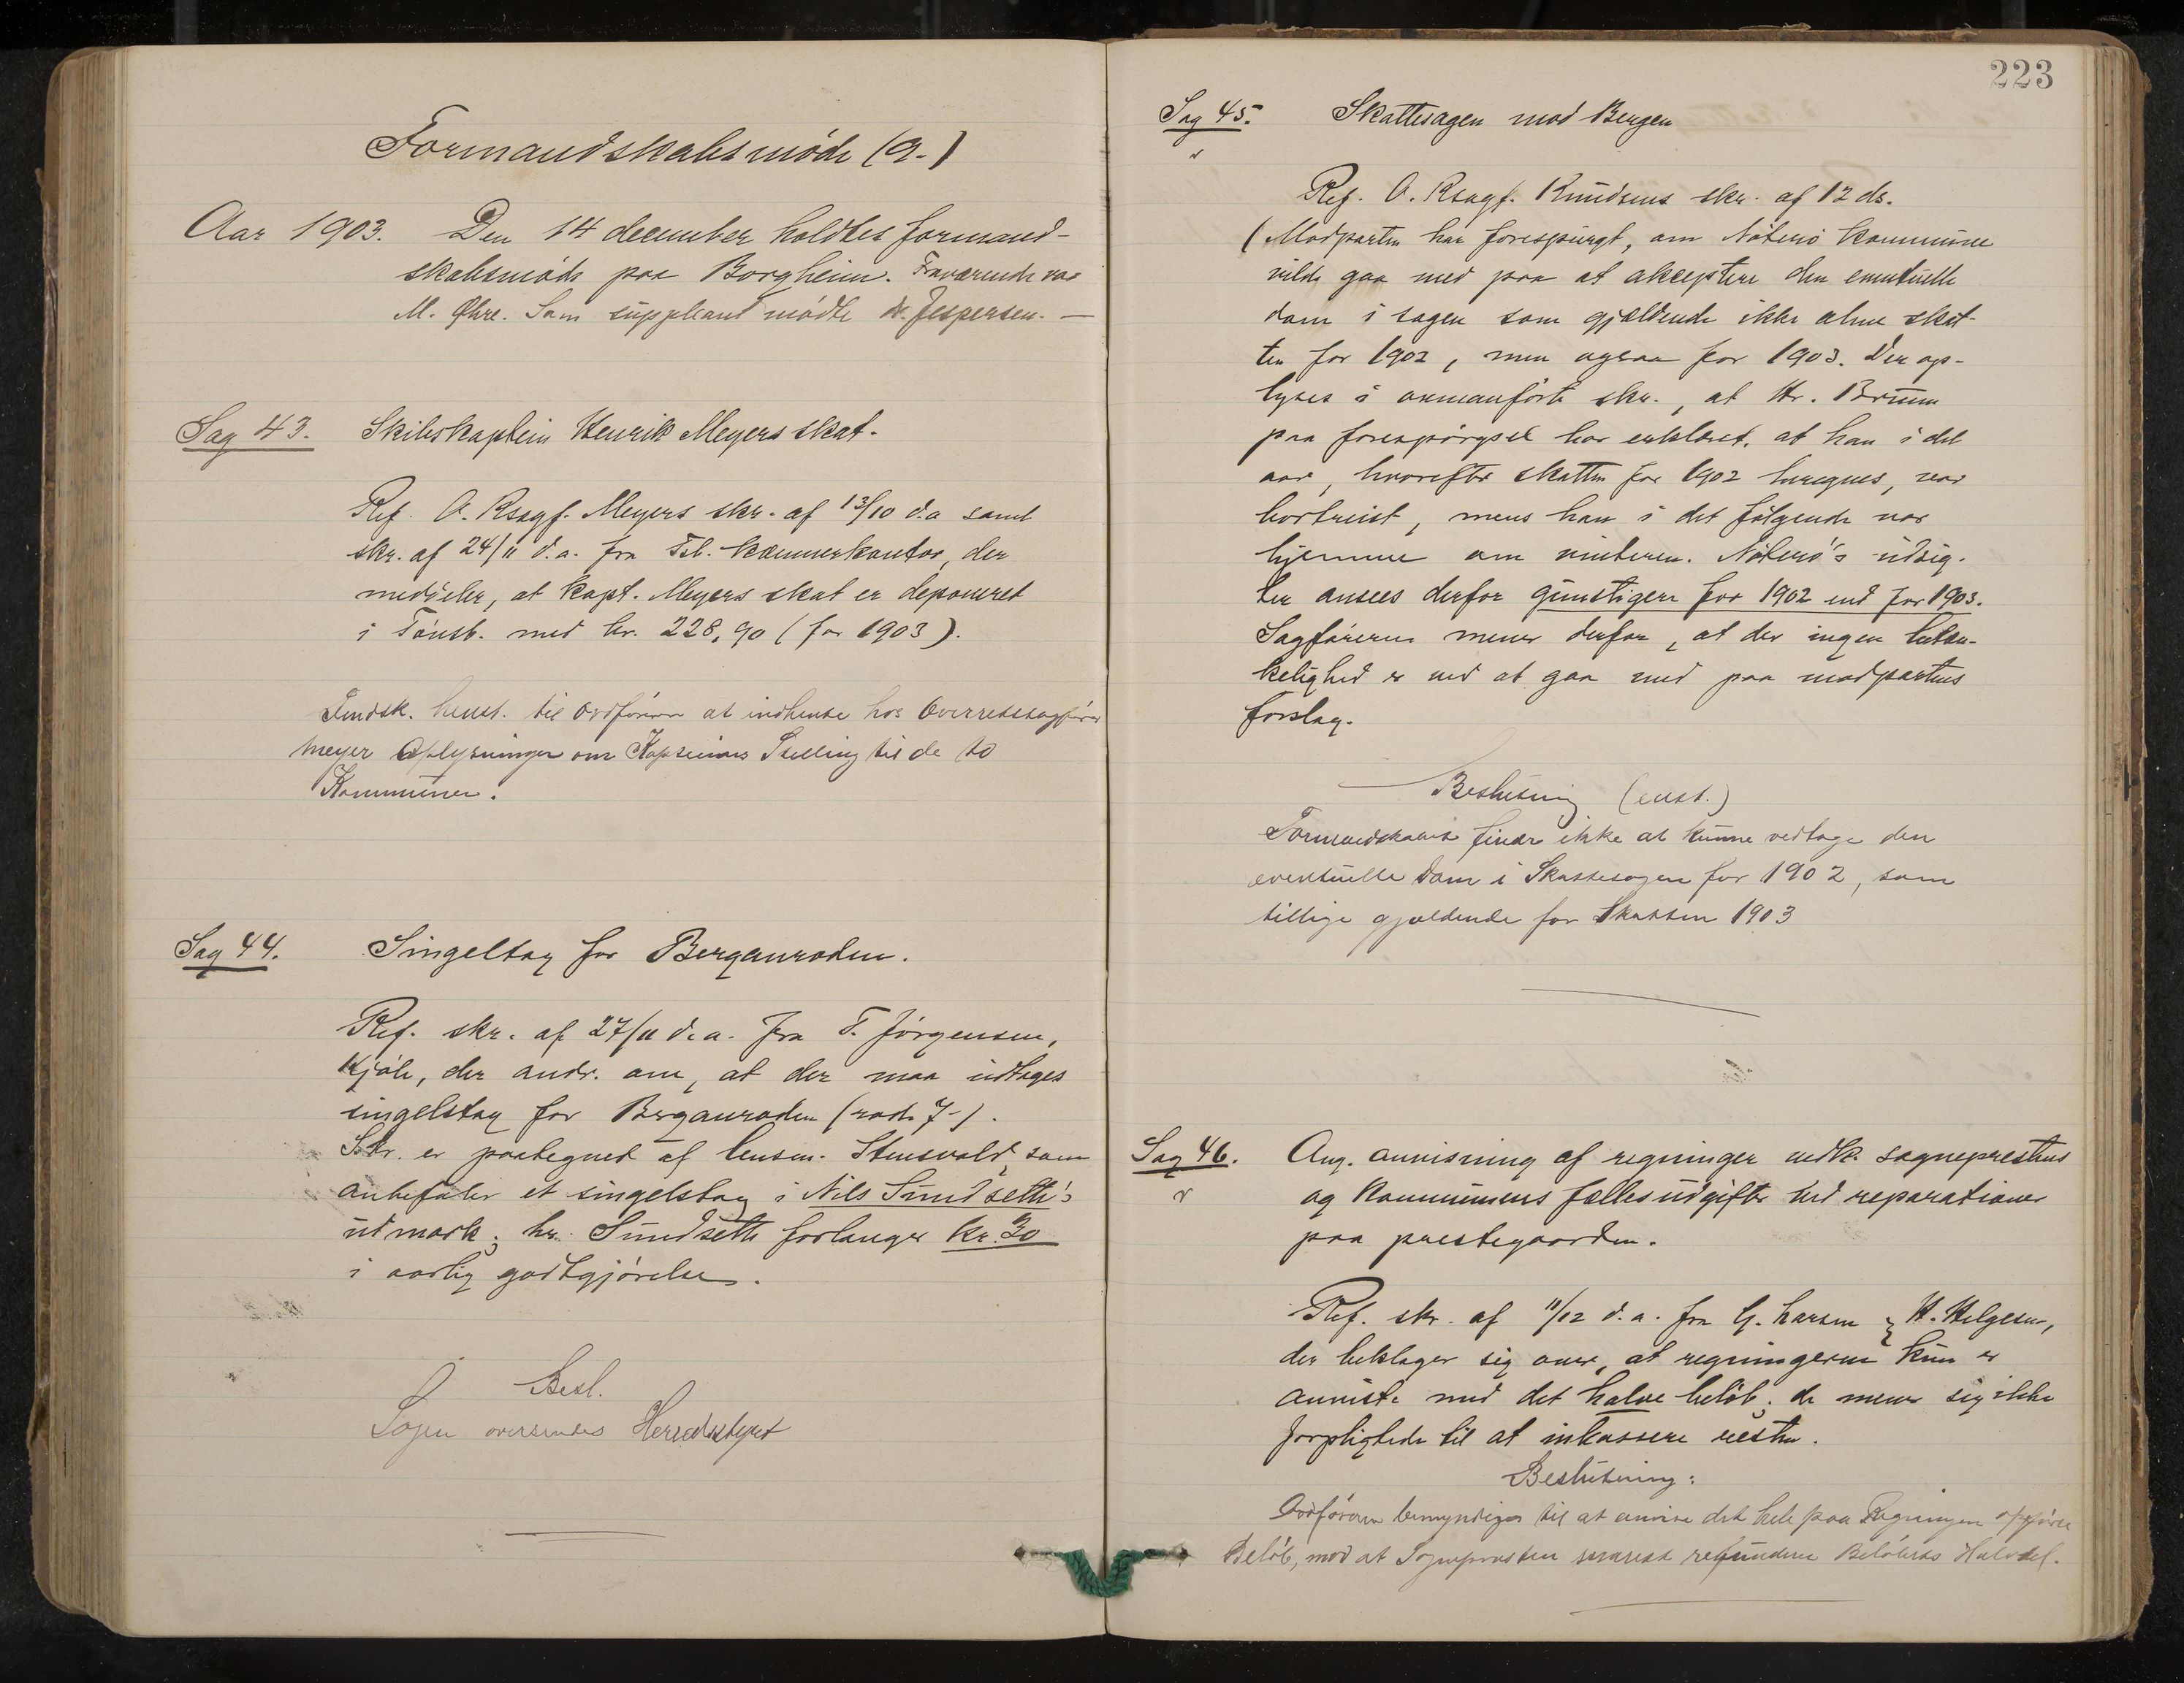 Formandskabsmøde (9.)
Aar 1903. Den 14 december holdtes formand-
skabsmøde paa Borgheim. Fraværende var
M. Øhre. Som suppleant mødte N. Jespersen. —
Sag 43. Skibskaptein Henrik Meyers skat.
Ref. O. Rsagf. Meyers skr. af 13/10 d.a samt
skr. af 24/11 d.a. fra Tsb. kæmnerkontor, der
meddeler, at kapt. Meyers skat er deponeret
i Tönsb. med kr. 228,90 (for 1903).
Fmdsk. henst. til Ordföreren at indhente hos Overretssagförer
Meyer Oplysninger om Kapteinens Stilling til de to
Kommuner.
Sag 44. Singeltag for Berganroden.
Ref. skr. af 27/11 d.a. fra T. Jörgensen,
Kjöle, der andr. om, at der maa udtages
singeltag for Berganroden (rode 7-).
Skr. er paategned af lensm. Stensvold, som
anbefaler et singelstag i Nils Sundseth's
udmark; hr. Sundseth forlanger kr. 30
i aarlig godtgjörelse.
Besl.
Sagen oversendes Herredsstyret
223
Sag 45. Skattesagen mod Bergen
Ref. O. Rsagf. Knudsens skr. af 12 ds.
(Modparten har forespurgt, om Nöterö kommune
vilde gaa med paa at akceptere den eventuelle
dom i sagen som gjældende ikke alene skat-
ten for 1902, men ogsaa for 1903. Der op-
lyses i ovenanförte skr., at Hr. Bruun
paa forespörgsel har erklæret, at han i det
aar, hvorefter skatten for 1902 beregnes, var
bortreist, mens han i det fölgende var
hjemme om vinteren. Nöterö's udsig-
ter ansees derfor gunstigere for 1902 end for 1903.
Sagföreren mener derfor, at der ingen betæn-
kelighed er ved at gaa med paa modpartens
forslag.
Beslutning (enst.)
Formandskabet finder ikke at kunne vedtage den
eventuelle Dom i Skattesagen for 1902, som
tillige gjældende for Skatten 1903
Sag 46. Ang. anvisning af regninger vedk. sogneprestens
og kommunens fælles udgifter ved reparationer
paa prestegaarden.
Ref. skr. af 11/12 d.a. fra G. Larsen & H. Helgesen,
der beklager sig over, at regningerne kun er
anviste med det halve belöb; de mener sig ikke
forpligtede til at inkassere resten.
Beslutning:
Ordföreren bemyndiges til at anvise det hele paa Regningen opförte
Belöb, mod at Sognepresten senerest refunderer Belöbets Halvdel.